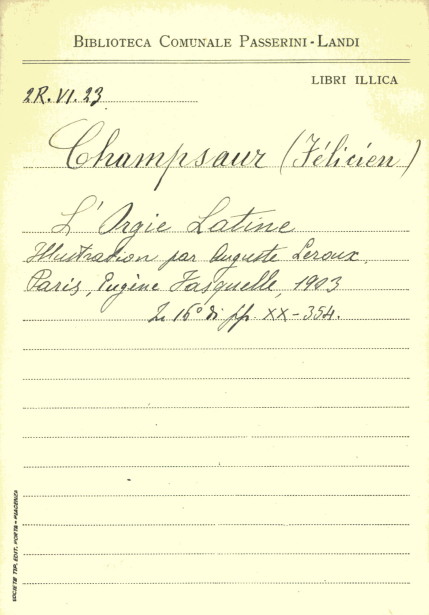 BIBLIOTECA COMUNALE PASSERINI - LANDI
LIBRI ILLICA
2R.VI.23
Champsaur (Félicien)
L'Orgie Latine
Illustration par Auguste Leroux,
Paris, Eugène Fasquelle, 1903
In 16° di pp. XX-354.
SOCIETÀ TIP. EDIT. PORTA - PIACENZA